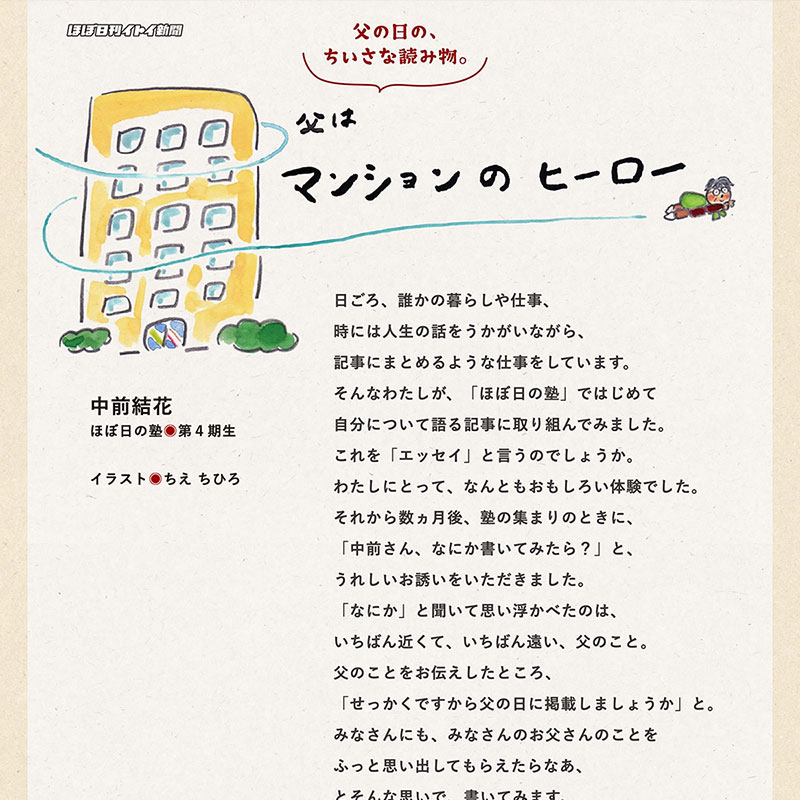 ほぼ日刊イトイ新聞
父の日の、
ちいさな読み物。
父は
マンションのヒーロー
中前結花
ほぼ日の塾◉第4期生
イラスト◉ちえ ちひろ
日ごろ、誰かの暮らしや仕事、
時には人生の話をうかがいながら、
記事にまとめるような仕事をしています。
そんなわたしが、「ほぼ日の塾」ではじめて
自分について語る記事に取り組んでみました。
これを「エッセイ」と言うのでしょうか。
わたしにとって、なんともおもしろい体験でした。
それから数ヵ月後、塾の集まりのときに、
「中前さん、なにか書いてみたら?」と、
うれしいお誘いをいただきました。
「なにか」と聞いて思い浮かべたのは、
いちばん近くて、いちばん遠い、父のこと。
父のことをお伝えしたところ、
「せっかくですから父の日に掲載しましょうか」と。
みなさんにも、みなさんのお父さんのことを
ふっと思い出してもらえたらなあ、
とそんな思いで、書いてみます。